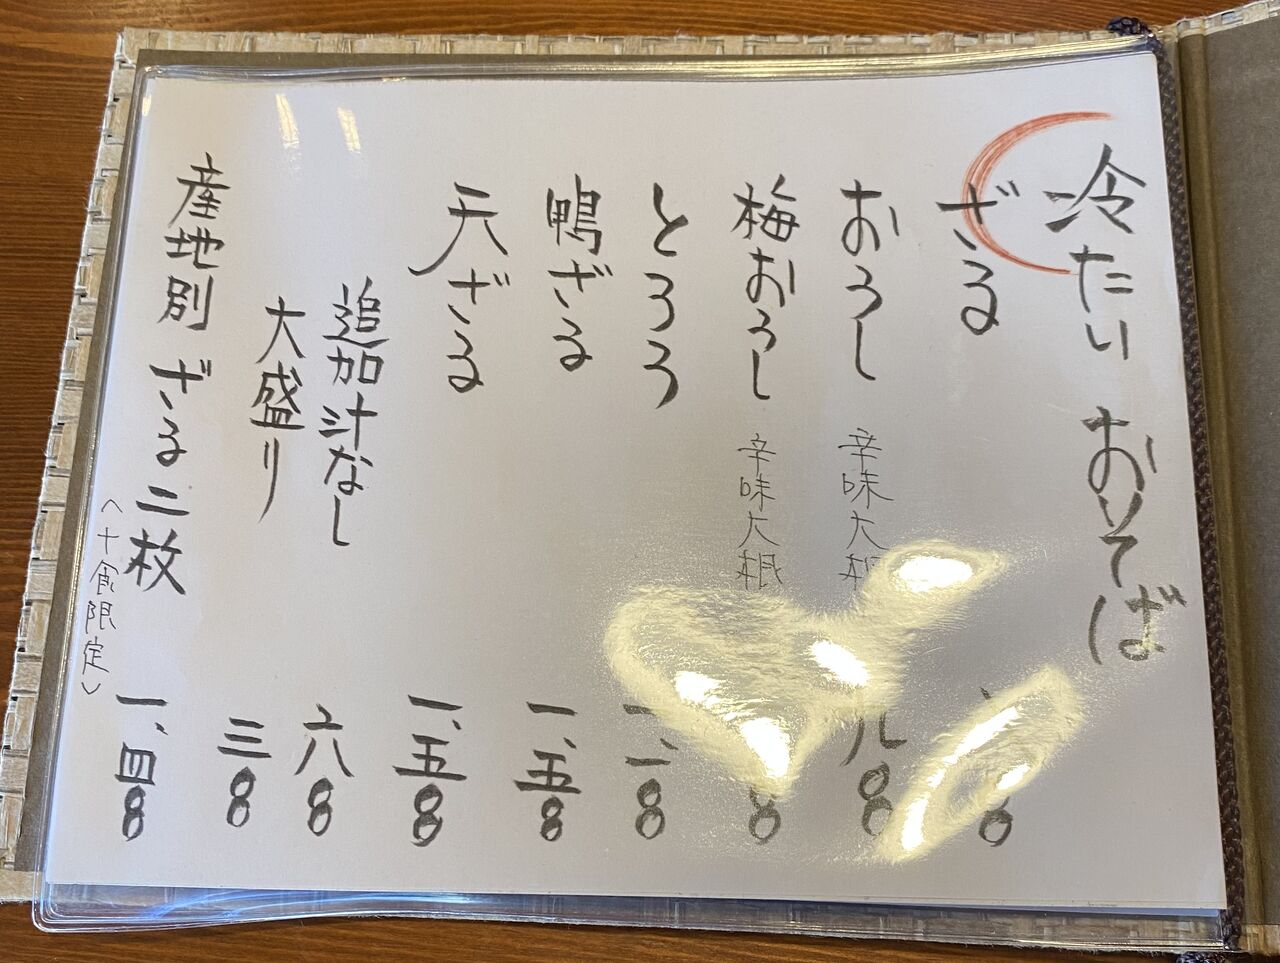 冷たい おそば
ざる
おろし 辛味大根 九〇〇
梅おろし 辛味大根
とろろ 一、二〇〇
鴨ざる 一、五〇〇
天ざる 一、五〇〇
追加汁なし 六〇〇
大盛り 三〇〇
産地別 ざる二枚 一、四〇〇
〈十食限定〉